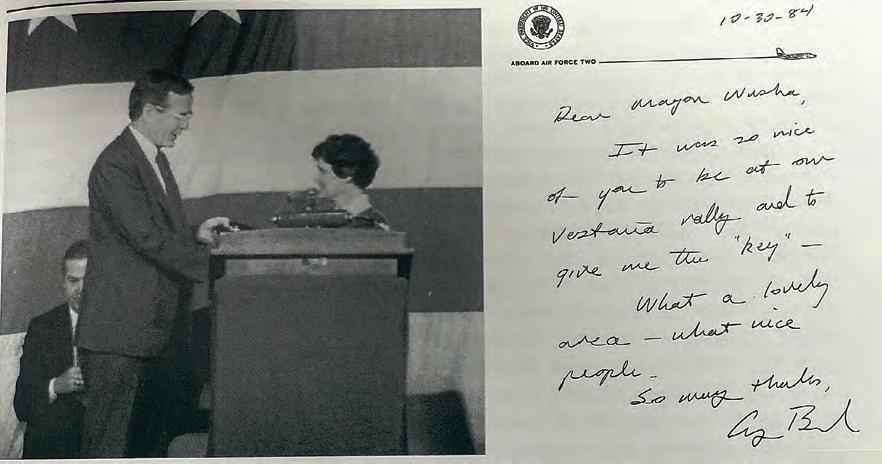 VICE PRESIDENT OF THE UNITED STATES
10-30-84
ABOARD AIR FORCE TWO
Dear Mayor
It was so nice
of you to be at our
Vestavia rally and to
give me the "key" —
What a lovely
area — what nice
people.
So many thanks,